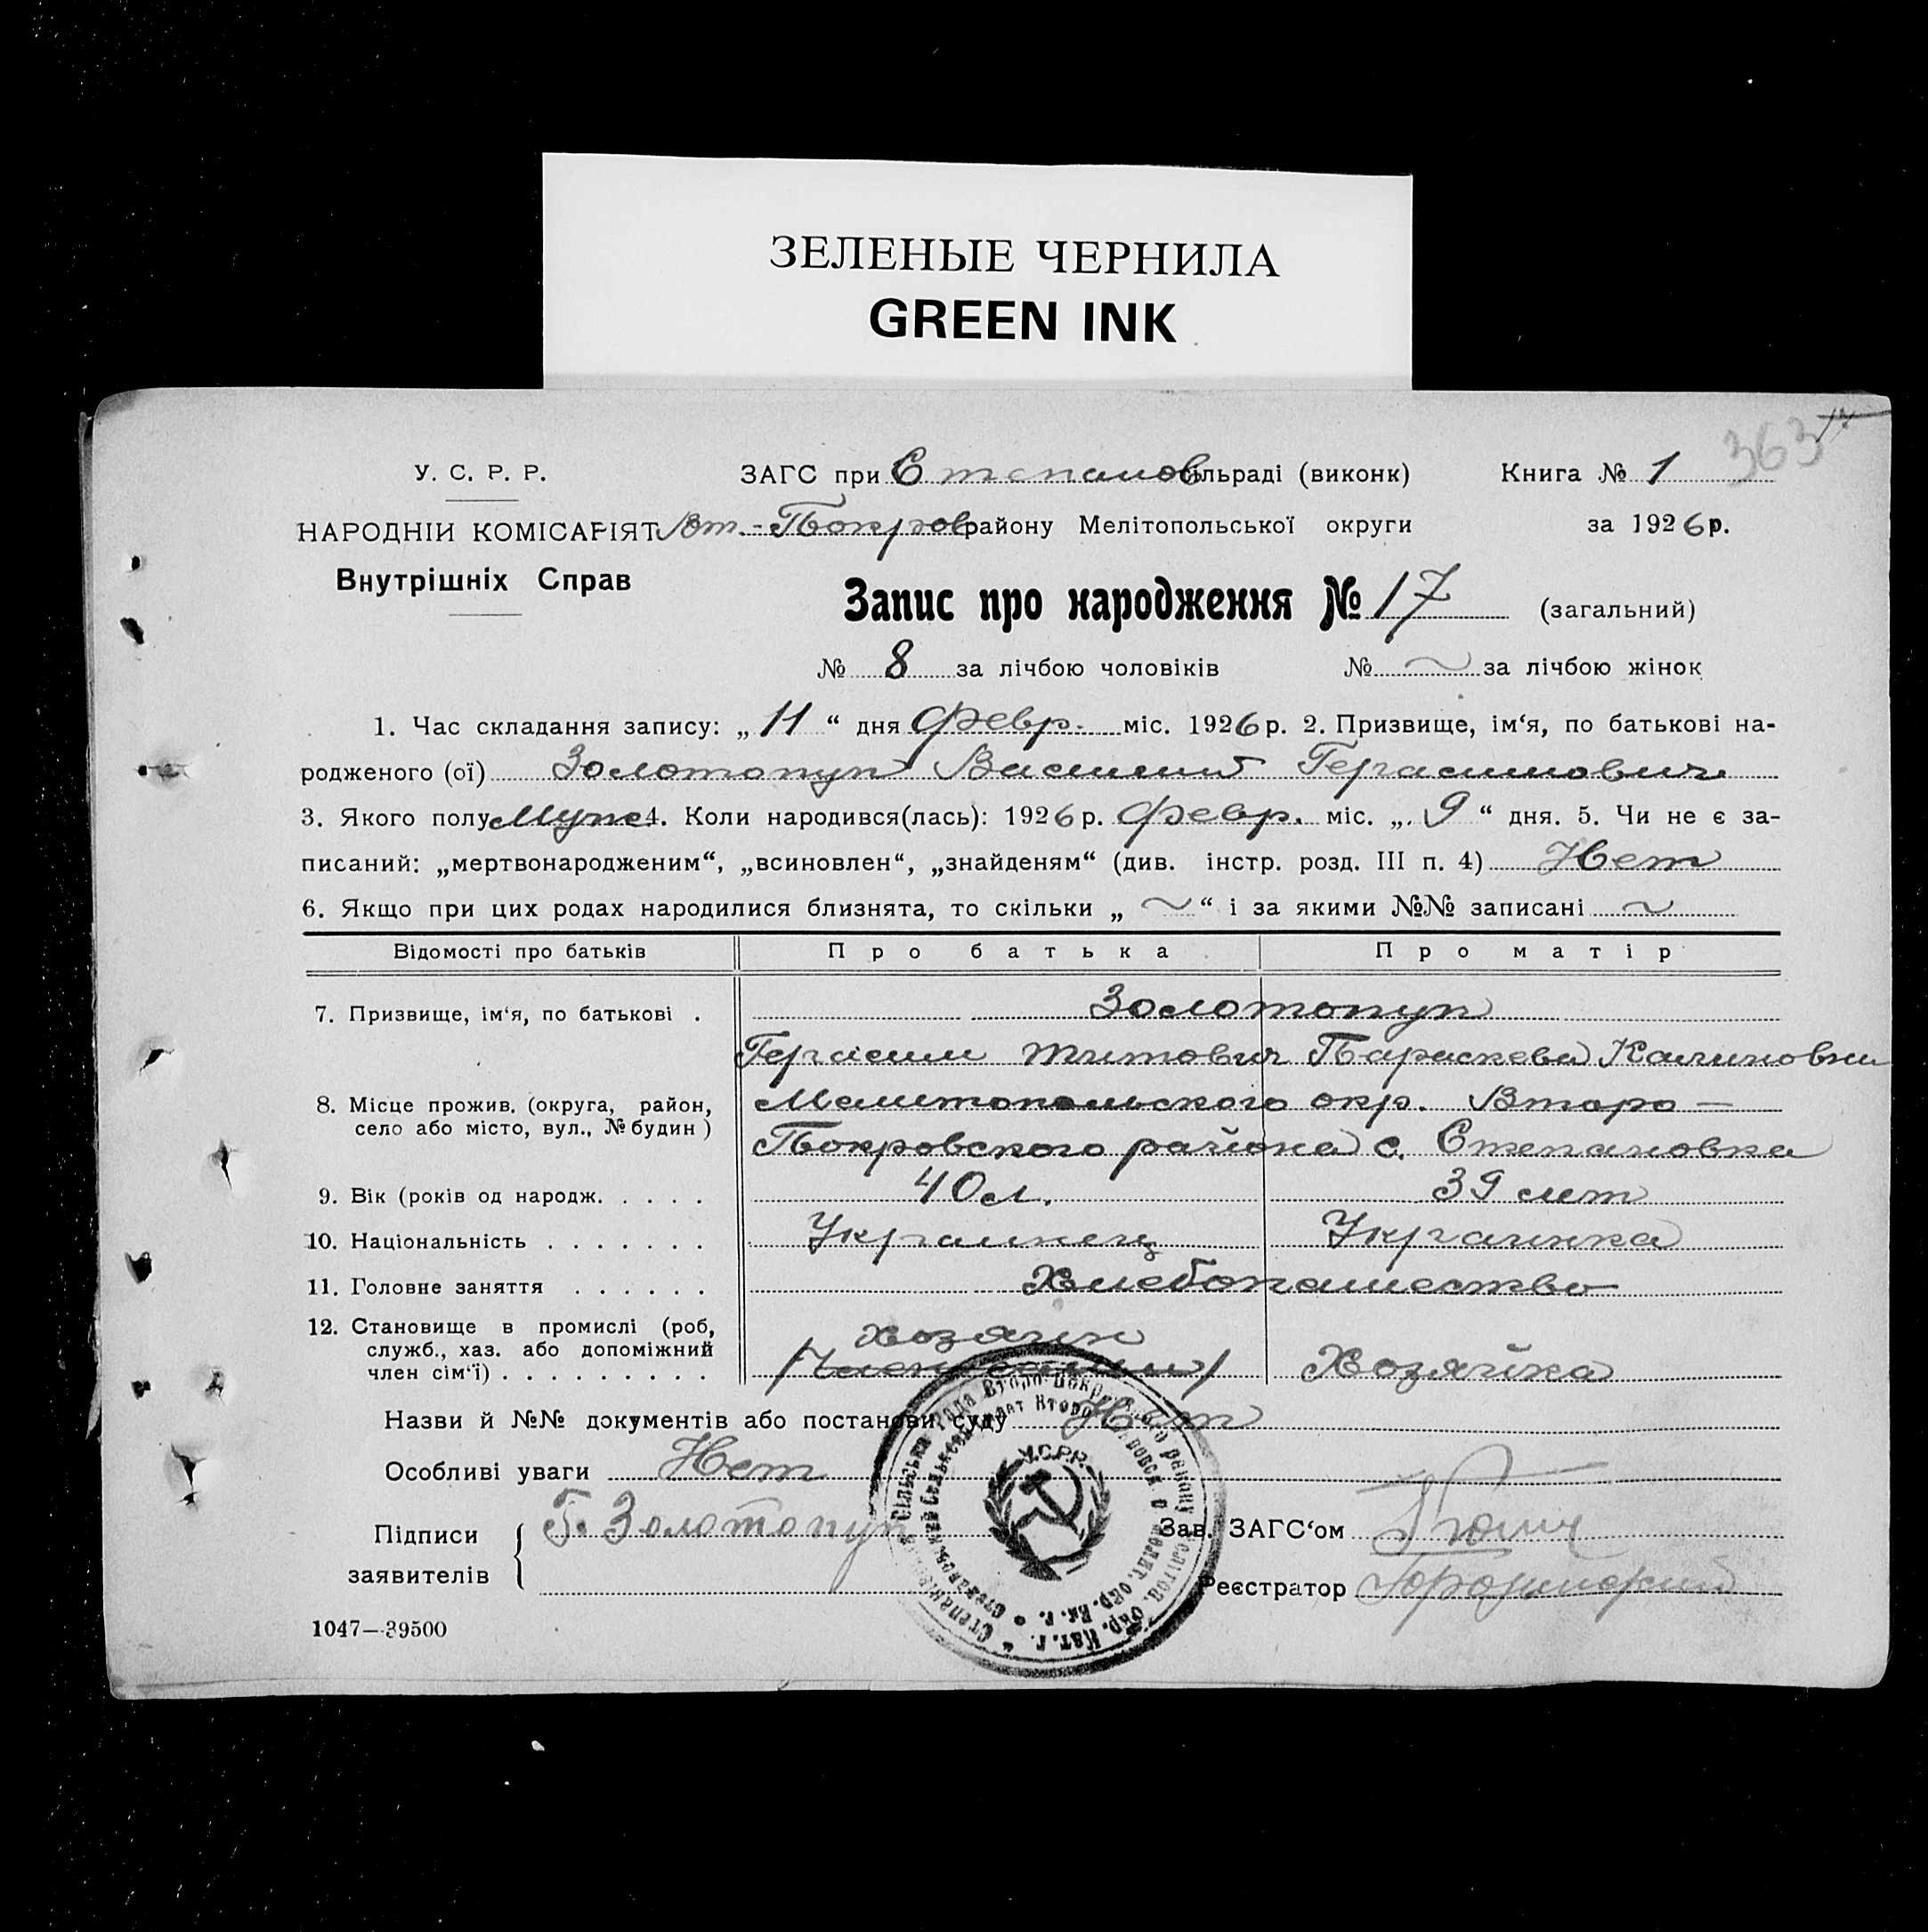 ЗЕЛЕНЫЕ ЧЕРНИЛА
GREEN INK
363 17
У. С. Р. Р. ЗАГС при Степанов сільраді (виконк) Книга № 1
НАРОДНІЙ КОМІСАРІЯТ Вт.-Покров району Мелітопольської округи за 1926 р.
Внутрішніх Справ
Запис про народження № 17 (загальний)
№ 8 за лічбою чоловіків № ~ за лічбою жінок
1. Час складання запису: „ 11 “ дня февр. міс. 1926 р. 2. Призвище, ім‘я, по батькові на-
родженого (ої) Золотопуп Василий Герасимович
3. Якого полу Муж 4. Коли народився(лась): 1926 р. февр. міс. „ 9 “ дня. 5. Чи не є за-
писаний: „мертвонародженим“, „всиновлен“, „знайденям“ (див. інстр. розд. III п. 4) Нет
6. Якщо при цих родах народилися близнята, то скільки „ ~ “ і за якими №№ записані ~
Відомості про батьків Про батька Про матір
7. Призвище, ім‘я, по батькові . Золотопуп
Герасим Титович Параскева Калиновна
8. Місце прожив. (округа, район, Мелитопольского окр. Второ —
село або місто, вул., № будин) Покровского района с. Степановка
9. Вік (років од народж. . . . . 40 л. 39 лет
10. Національність . . . . . . . Украинец Украинка
11. Головне заняття . . . . . . Хлебопашество
12. Становище в промислі (роб, хозяин
служб., хаз. або допоміжний
член сім‘ї) . . . . . . . . . Хозяйка
Назви й №№ документів або постанови суду Нет
Особливі уваги Нет
Підписи Г. Золотопуп Зав. ЗАГС‘ом
заявителів Реєстратор
У.С.Р.Р.
1047—39500